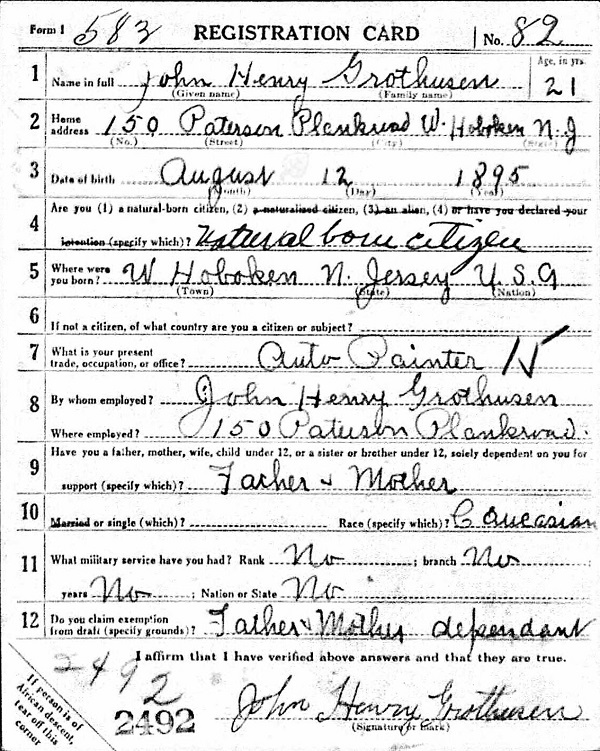 Form 1 583 REGISTRATION CARD No. 82
1 Name in full John Henry Grothusen Age, in yrs. 21
(Given name) (Family name)
2 Home address 150 Paterson Plankroad W. Hoboken N. J
(No.) (Street) (City) (State)
3 Date of birth August 12 1895
(Month) (Day) (Year)
4 Are you (1) a natural-born citizen, (2) a naturalized citizen, (3) an alien, (4) or have you declared your
intention (specify which)? Natural born citizen
5 Where were you born? W Hoboken N. Jersey U. S. A
(Town) (State) (Nation)
6 If not a citizen, of what country are you a citizen or subject?
7 What is your present trade, occupation, or office? Auto Painter 15
8 By whom employed? John Henry Grothusen
Where employed? 150 Paterson Plankroad.
9 Have you a father, mother, wife, child under 12, or a sister or brother under 12, solely dependent on you for
support (specify which)? Father & Mother
10 Married or single (which)? Race (specify which)? Caucasian
11 What military service have you had? Rank No ; branch No
years No ; Nation or State No
12 Do you claim exemption from draft (specify grounds)? Father & Mother dependant
I affirm that I have verified above answers and that they are true.
2492
2492 John Henry Grothusen
(Signature or mark)
If person is of
African descent,
tear off this
corner